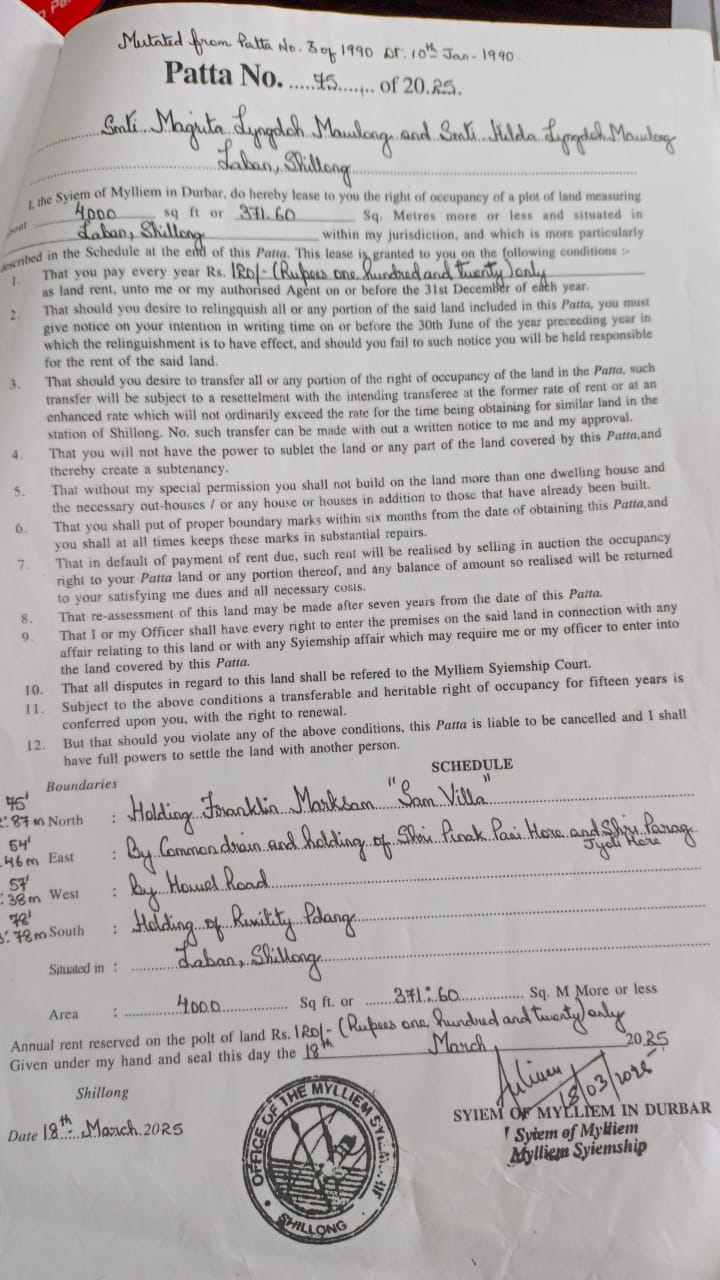 Mutated from Patta No. 3 of 1990 Dt. 10th Jan - 1990.
Patta No. .....75....... of 20.25.
Smti. Magrita Lyngdoh Mawlong and Smti. Hilda Lyngdoh Mawlong
Laban, Shillong
I, the Syiem of Mylliem in Durbar, do hereby lease to you the right of occupancy of a plot of land measuring
about 4000 sq ft or 371.60 Sq. Metres more or less and situated in
Laban, Shillong within my jurisdiction, and which is more particularly
described in the Schedule at the end of this Patta. This lease is granted to you on the following conditions :-
1. That you pay every year Rs. 120/- (Rupees one hundred and twenty) only
as land rent, unto me or my authorised Agent on or before the 31st December of each year.
2. That should you desire to relingquish all or any portion of the said land included in this Patta, you must
give notice on your intention in writing time on or before the 30th June of the year preceeding year in
which the relinguishment is to have effect, and should you fail to such notice you will be held responsible
for the rent of the said land.
3. That should you desire to transfer all or any portion of the right of occupancy of the land in the Patta, such
transfer will be subject to a resettelment with the intending transferee at the former rate of rent or at an
enhanced rate which will not ordinarily exceed the rate for the time being obtaining for similar land in the
station of Shillong. No. such transfer can be made with out a written notice to me and my approval.
4. That you will not have the power to sublet the land or any part of the land covered by this Patta,and
thereby create a subtenancy.
5. That without my special permission you shall not build on the land more than one dwelling house and
the necessary out-houses / or any house or houses in addition to those that have already been built.
6. That you shall put of proper boundary marks within six months from the date of obtaining this Patta,and
you shall at all times keeps these marks in substantial repairs.
7. That in default of payment of rent due, such rent will be realised by selling in auction the occupancy
right to your Patta land or any portion thereof, and any balance of amount so realised will be returned
to your satisfying me dues and all necessary costs.
8. That re-assessment of this land may be made after seven years from the date of this Patta.
9. That I or my Officer shall have every right to enter the premises on the said land in connection with any
affair relating to this land or with any Syiemship affair which may require me or my officer to enter into
the land covered by this Patta.
10. That all disputes in regard to this land shall be refered to the Mylliem Syiemship Court.
11. Subject to the above conditions a transferable and heritable right of occupancy for fifteen years is
conferred upon you, with the right to renewal.
12. But that should you violate any of the above conditions, this Patta is liable to be cancelled and I shall
have full powers to settle the land with another person.
SCHEDULE
Boundaries
75'
87 m North : Holding Franklin Marksam "Sam Villa"
54'
46 m East : By Common drain and holding of Shri. Pinak Pani Hore and Shri. Parag
Jyoti Hore
57'
38 m West : By Howel Road
78'
78 m South : Holding of Pdang
Situated in : Laban, Shillong
Area : 4000 Sq ft. or 371.60 Sq. M More or less
Annual rent reserved on the polt of land Rs. 120/- (Rupees one hundred and twenty) only
Given under my hand and seal this day the 18th March 2025
Shillong
18/03/2025
Date 18th March 2025
SYIEM OF MYLLIEM IN DURBAR
Syiem of Mylliem
Mylliem Syiemship
OFFICE OF THE MYLLIEM SYIEMSHIP
SHILLONG